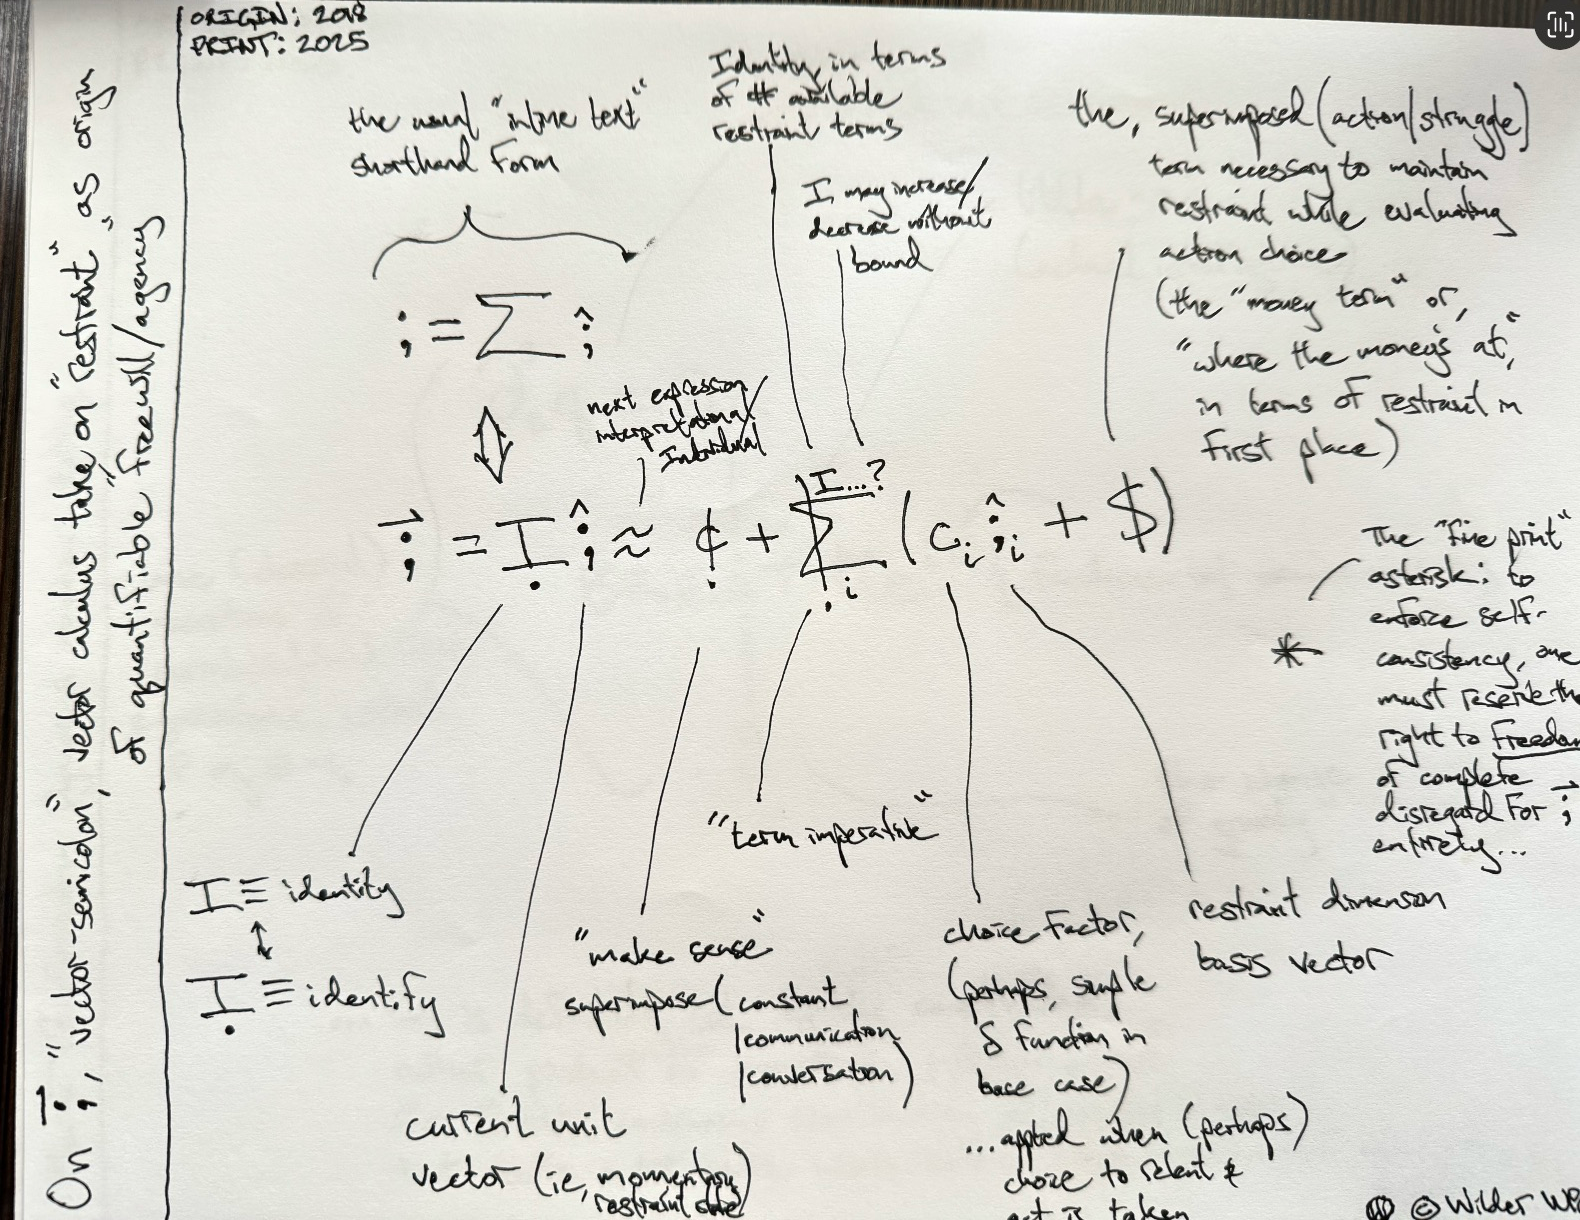 On ;⃗, "vector-semicolon", vector calculus take on "restraint" as origin
of quantifiable "freewill/agency"
ORIGIN: 2018
PRINT: 2025
the usual "inline text"
shorthand form
; = Σ ;̂
⇕
Identity, in terms
of # available
restraint terms
I, may increase/
decrease without
bound
the, superimposed (action/struggle)
term necessary to maintain
restraint while evaluating
action choice
(the "money term" or,
"where the money's at,"
in terms of restraint in
first place)
next expression
interpretational/
Individual
;⃗ = Ị ;̂ ≈ ¢̣ + Σ̣ᵢ I...? (cᵢ ;̂ᵢ + $)
*
The "fine print"
asterisk: to
enforce self-
consistency, one
must reserve the
right to Freedom
of complete
disregard for ;⃗
entirety...
I ≡ identity
↕
Ị ≡ identify
current unit
vector (ie, momentary
restraint state)
"make sense"
superimpose (constant
/communication
/conversation)
"term imperative"
choice factor,
(perhaps, simple
δ function in
base case)
...applied when (perhaps)
choice to relent &
act is taken
restraint dimension
basis vector
© Wilder